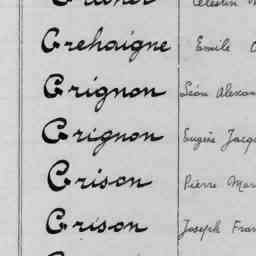 Grehaigne Emile
Grignon Léon Alexan
Grignon Eugène Jacq
Grison Pierre Mar
Grison Joseph Fran